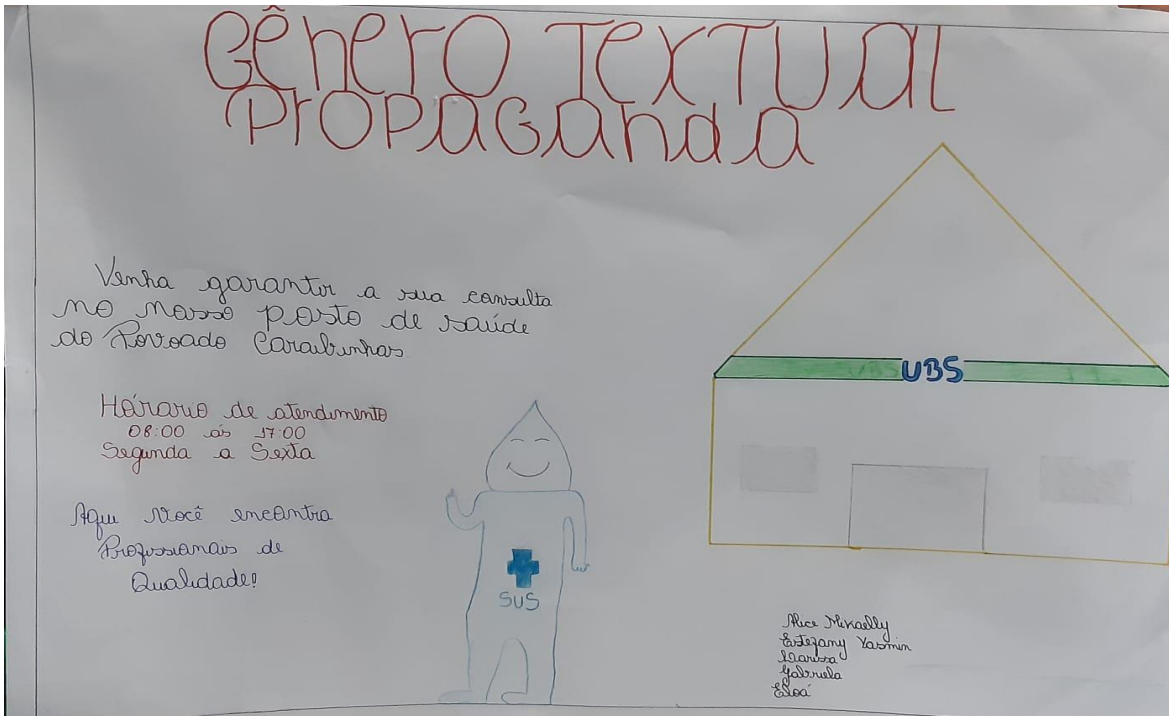 Gênero Textual
Propaganda
Venha garantir a sua consulta
no nosso posto de saúde
do Povoado Caraibinhas
Hórario de atendimento
08:00 ás 17:00
Segunda a Sexta
Aqui você encontra
Profissionais de
Qualidade!
UBS
SUS
Alice Mikaelly
Estefany Yasmin
Clarissa
Gabriela
Eloá